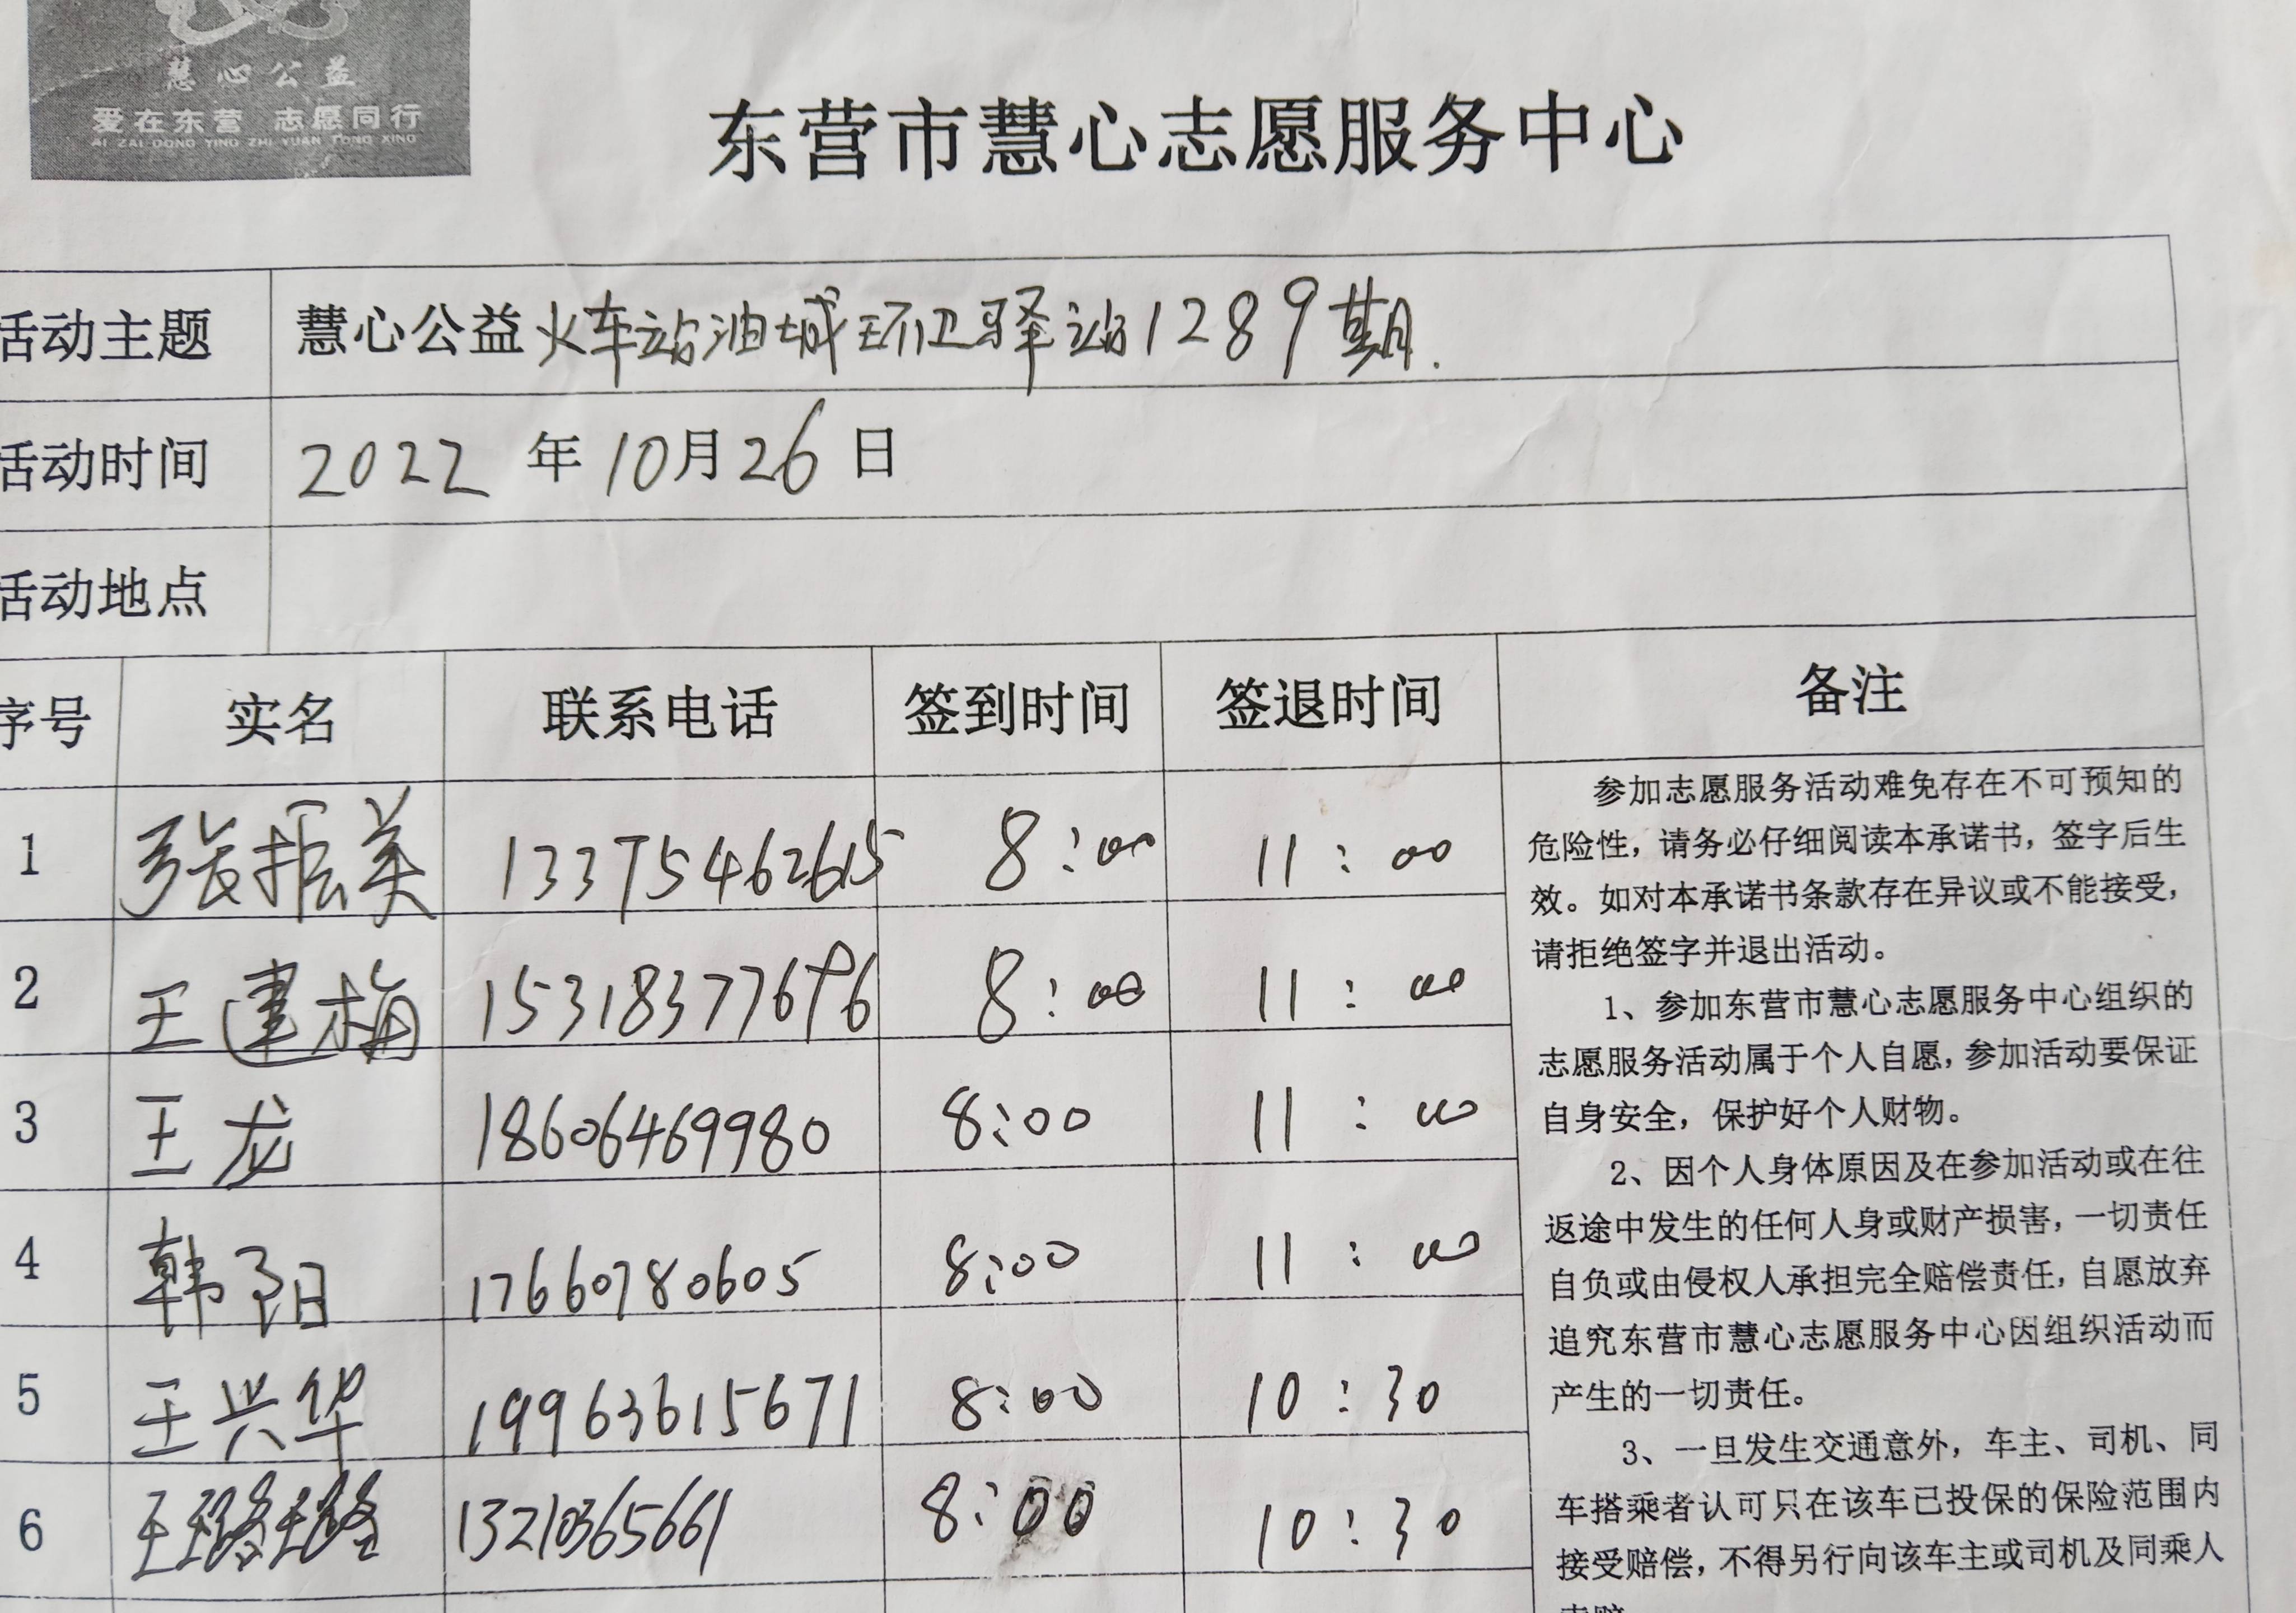 慧心公益
爱在东营 志愿同行
AI ZAI DONG YING ZHI YUAN TONG XING
东营市慧心志愿服务中心
活动主题 慧心公益火车站油城环卫驿站1289期.
活动时间 2022 年 10月26 日
活动地点
序号 实名 联系电话 签到时间 签退时间 备注
1 张振美 13375462615 8:00 11:00
2 王建梅 15318377696 8:00 11:00
3 王龙 18606469980 8:00 11:00
4 韩阳 17660780605 8:00 11:00
5 王兴华 19963615671 8:00 10:30
6 王璐璐 13210365661 8:00 10:30
参加志愿服务活动难免存在不可预知的
危险性，请务必仔细阅读本承诺书，签字后生
效。如对本承诺书条款存在异议或不能接受，
请拒绝签字并退出活动。
1、参加东营市慧心志愿服务中心组织的
志愿服务活动属于个人自愿，参加活动要保证
自身安全，保护好个人财物。
2、因个人身体原因及在参加活动或在往
返途中发生的任何人身或财产损害，一切责任
自负或由侵权人承担完全赔偿责任，自愿放弃
追究东营市慧心志愿服务中心因组织活动而
产生的一切责任。
3、一旦发生交通意外，车主、司机、同
车搭乘者认可只在该车已投保的保险范围内
接受赔偿，不得另行向该车主或司机及同乘人